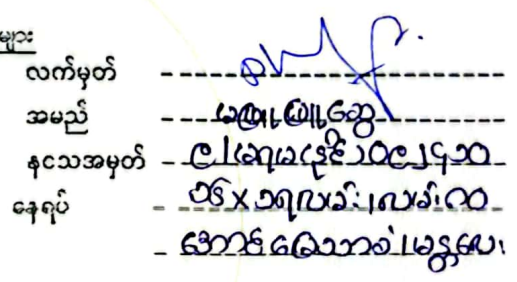 များ
လက်မှတ်
အမည် မဖြူဖြူဆွေ
နင်သအမှတ် ၉/မရမ(နိုင်)၁၀၉၂၄၁၀
နေရပ် ၁၆x၁၇လမ်း၊လမ်း၈၀
အောင်မြေသာစံ၊မန္တလေး